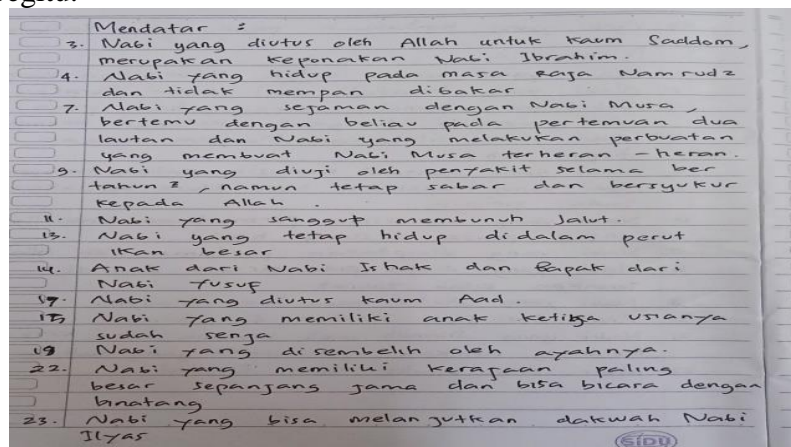 Mendatar :
3. Nabi yang diutus oleh Allah untuk kaum Saddom,
merupakan keponakan Nabi Ibrahim.
4. Nabi yang hidup pada masa Raja Namrudz
dan tidak mempan dibakar
7. Nabi yang sejaman dengan Nabi Musa,
bertemu dengan beliau pada pertemuan dua
lautan dan Nabi yang melakukan perbuatan
yang membuat Nabi Musa terheran - heran.
9. Nabi yang diuji oleh penyakit selama ber
tahun2, namun tetap sabar dan bersyukur
kepada Allah.
11. Nabi yang sanggup membunuh Jalut.
13. Nabi yang tetap hidup di dalam perut
ikan besar
14. Anak dari Nabi Ishak dan Bapak dari
Nabi Yusuf
Nabi yang diutus kaum Aad.
Nabi yang memiliki anak ketika usianya
sudah senja
19 Nabi yang disembelih oleh ayahnya.
22. Nabi yang memiliki kerajaan paling
besar sepanjang jama dan bisa bicara dengan
binatang
23. Nabi yang bisa melanjutkan dakwah Nabi
Ilyas
SIDU